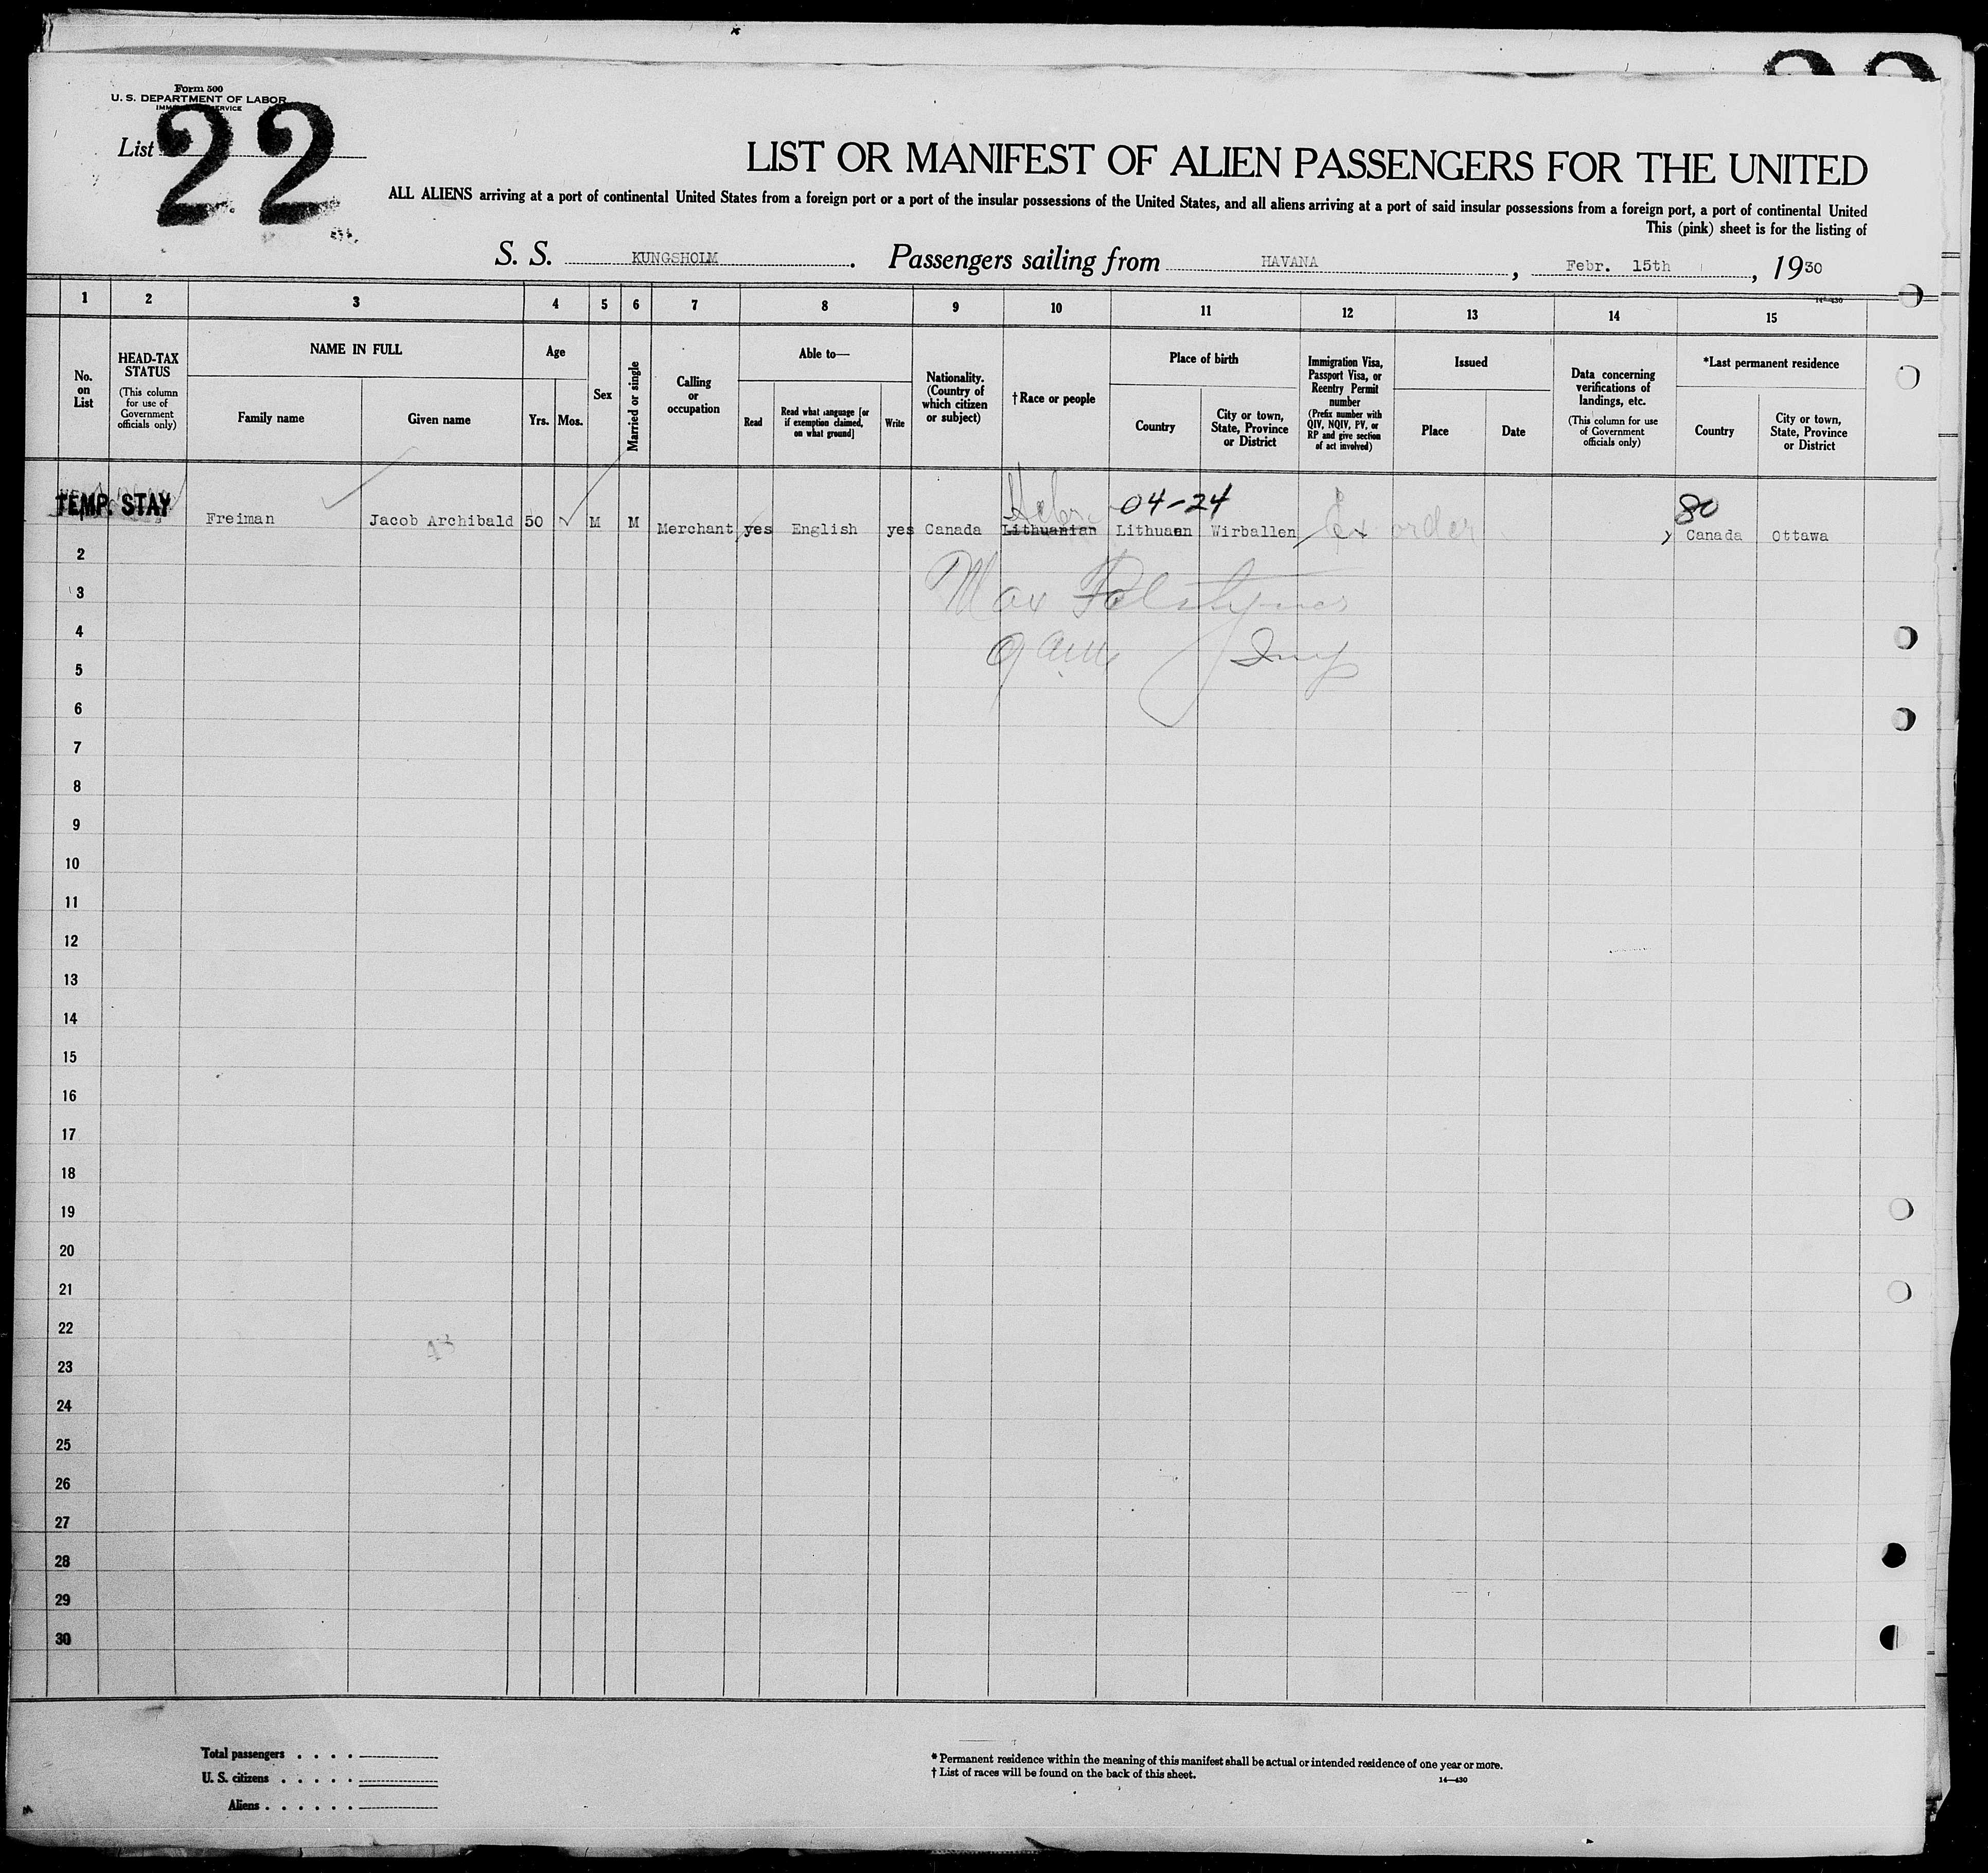 Form 500
U. S. DEPARTMENT OF LABOR
List 22
LIST OR MANIFEST OF ALIEN PASSENGERS FOR THE UNITED
ALL ALIENS arriving at a port of continental United States from a foreign port or a port of the insular possessions of the United States, and all aliens arriving at a port of said insular possessions from a foreign port, a port of continental United
This (pink) sheet is for the listing of
S. S. KUNGSHOLM. Passengers sailing from HAVANA, Febr. 15th, 1930
14-430
1 2 3 4 5 6 7 8 9 10 11 12 13 14 15
No. on List
HEAD-TAX STATUS
(This column for use of Government officials only)
NAME IN FULL
Family name
Given name
Age
Yrs.
Mos.
Sex
Married or single
Calling or occupation
Able to—
Read
Read what language [or if exemption claimed, on what ground]
Write
Nationality. (Country of which citizen or subject)
†Race or people
Place of birth
Country
City or town, State, Province or District
Immigration Visa, Passport Visa, or Reentry Permit number
(Prefix number with QIV, NQIV, PV, or RP and give section of act involved)
Issued
Place
Date
Data concerning verifications of landings, etc.
(This column for use of Government officials only)
*Last permanent residence
Country
City or town, State, Province or District
Hebr. 04-24 80
TEMP. STAY Freiman Jacob Archibald 50 M M Merchant yes English yes Canada Lithuanian Lithuaen Wirballen Ex order Canada Ottawa
2
3 Max
4
5 Insp
6
7
8
9
10
11
12
13
14
15
16
17
18
19
20
21
22
23
24
25
26
27
28
29
30
Total passengers . . . .
U. S. citizens . . . . .
Aliens . . . . . .
* Permanent residence within the meaning of this manifest shall be actual or intended residence of one year or more.
† List of races will be found on the back of this sheet.
14—430